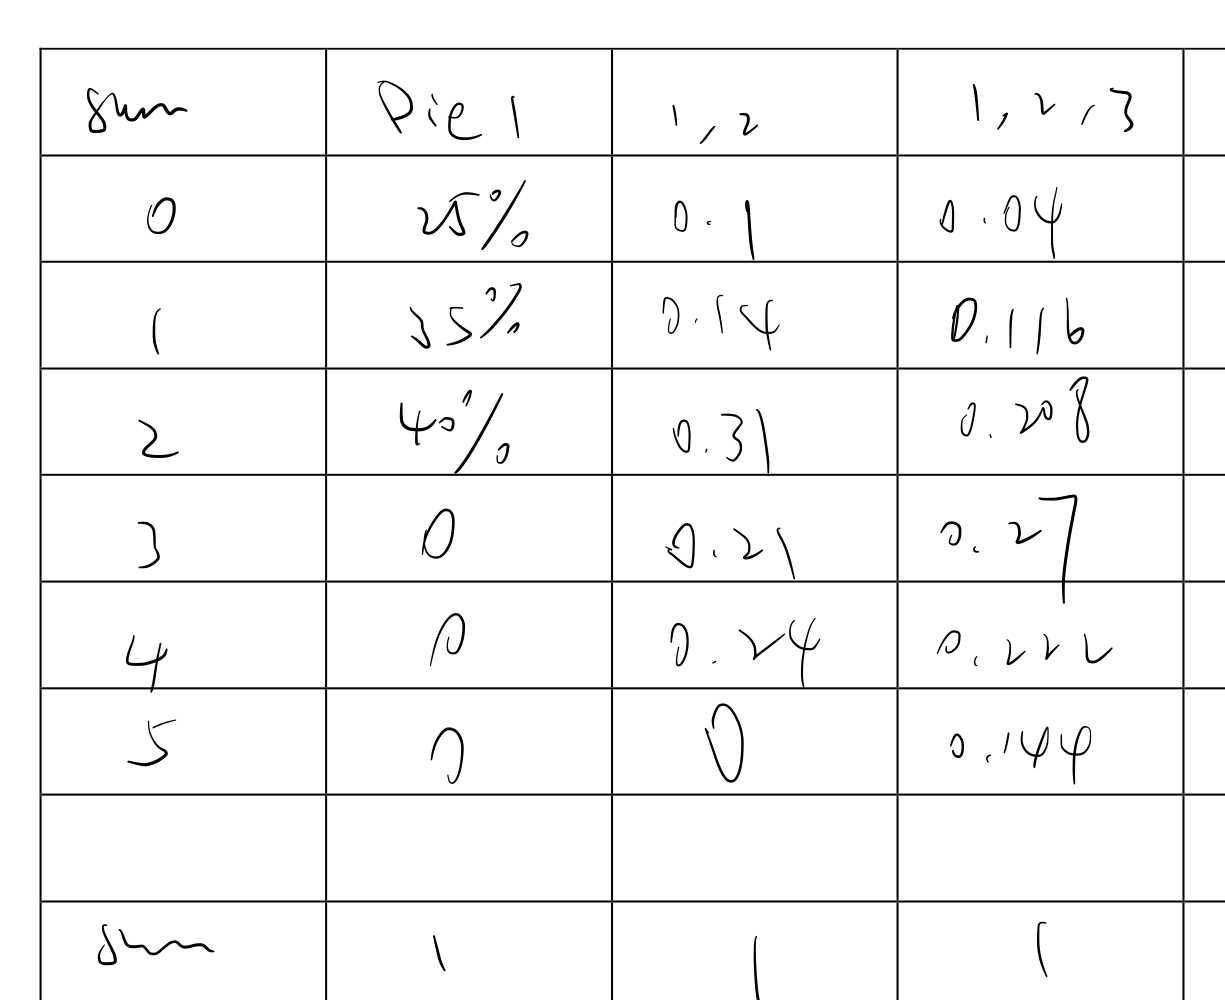 sum Pie 1 1,2 1,2,3
0 25% 0.1 0.04
1 35% 0.14 0.116
2 40% 0.31 0.208
3 0 0.21 0.27
4 0 0.24 0.222
5 0 0 0.144
sum 1 1 1